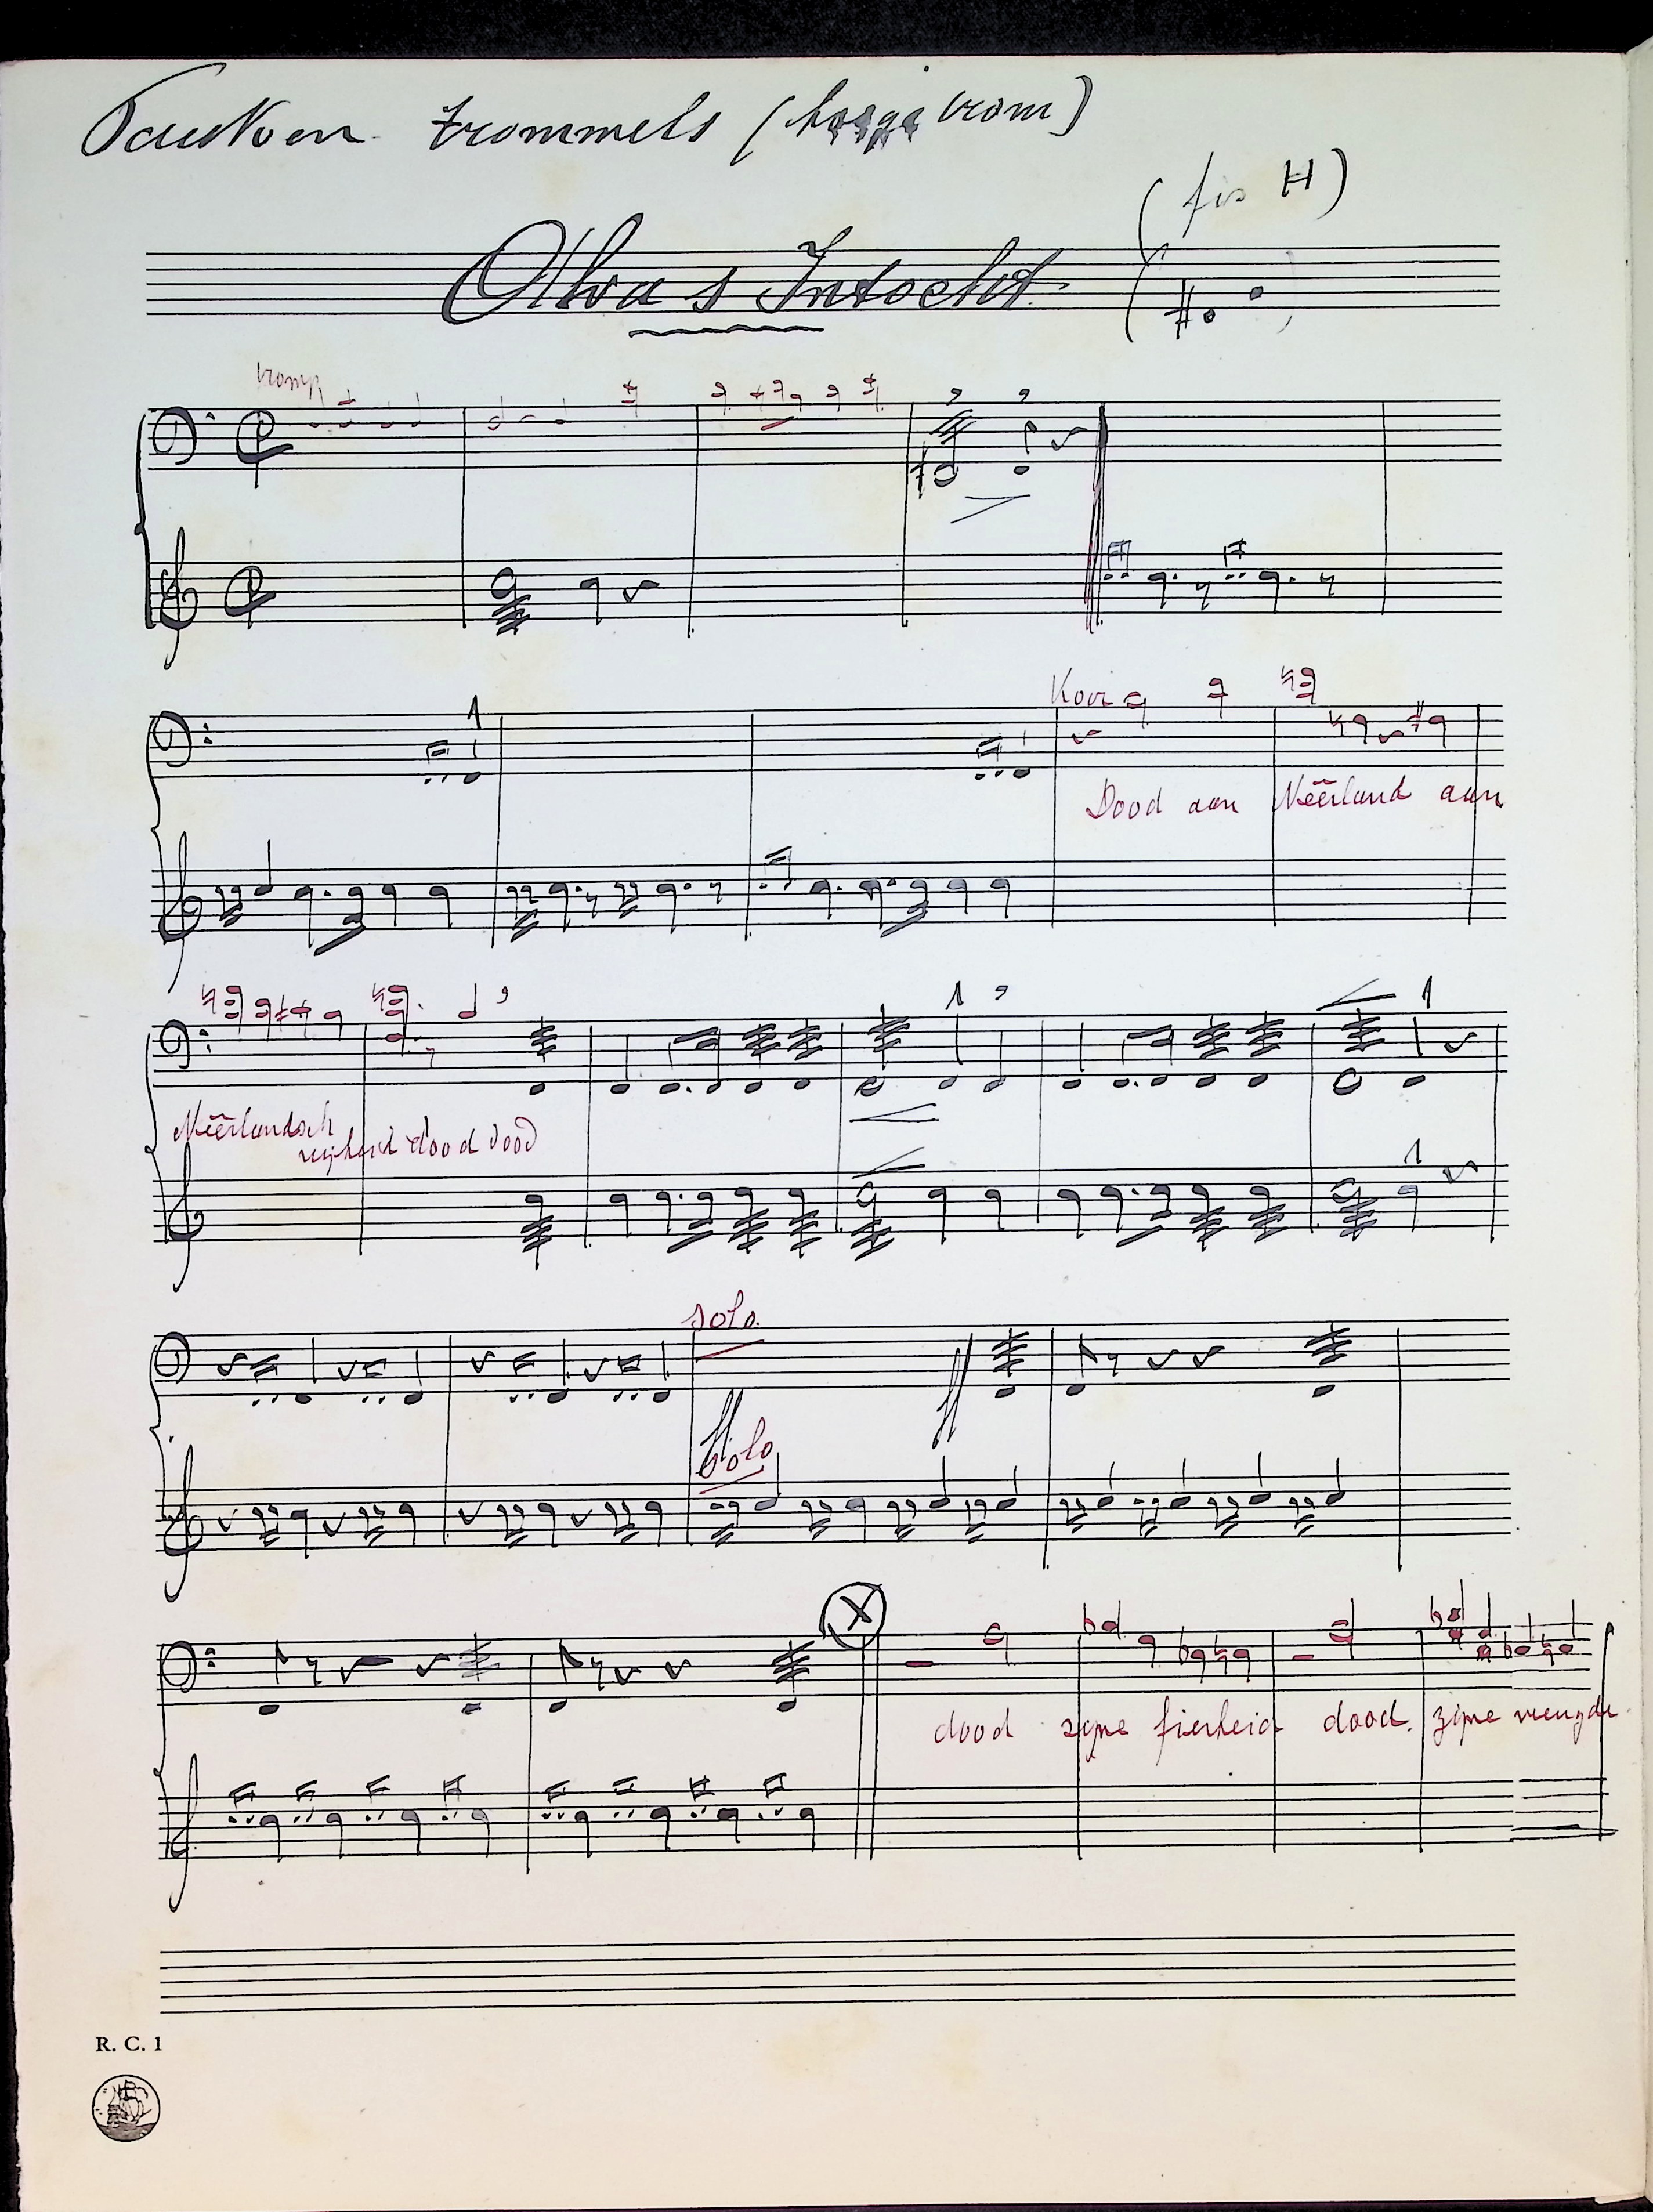 Pauken. trommels (hooge trom)
(fis H)
Alva's Intocht
tromp
Koor
Dood aan Nêerland aan
Nêerlandsch
vrijheid dood dood
solo.
ff
Solo
X
dood zijne fierheid dood. zijne vreugde
R. C. 1